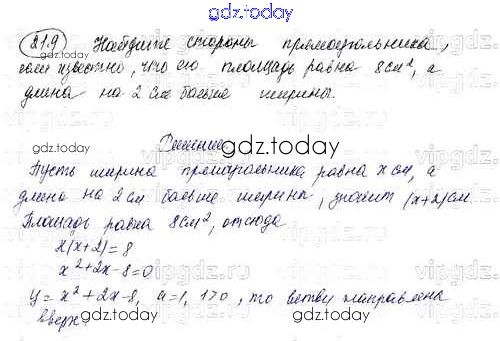 gdz.today
21.9 Найдите стороны прямоугольника,
если известно, что его площадь равна 8 см², а
длина на 2 см больше ширины.
Решение
gdz.today
Пусть ширина прямоугольника равна x см, а
длина на 2 см больше ширины, значит (x+2) см.
Площадь равна 8 см², отсюда
x(x+2)=8
x²+2x-8=0
y=x²+2x-8, a=1, 1>0, то ветви направлены
вверх.
gdz.today